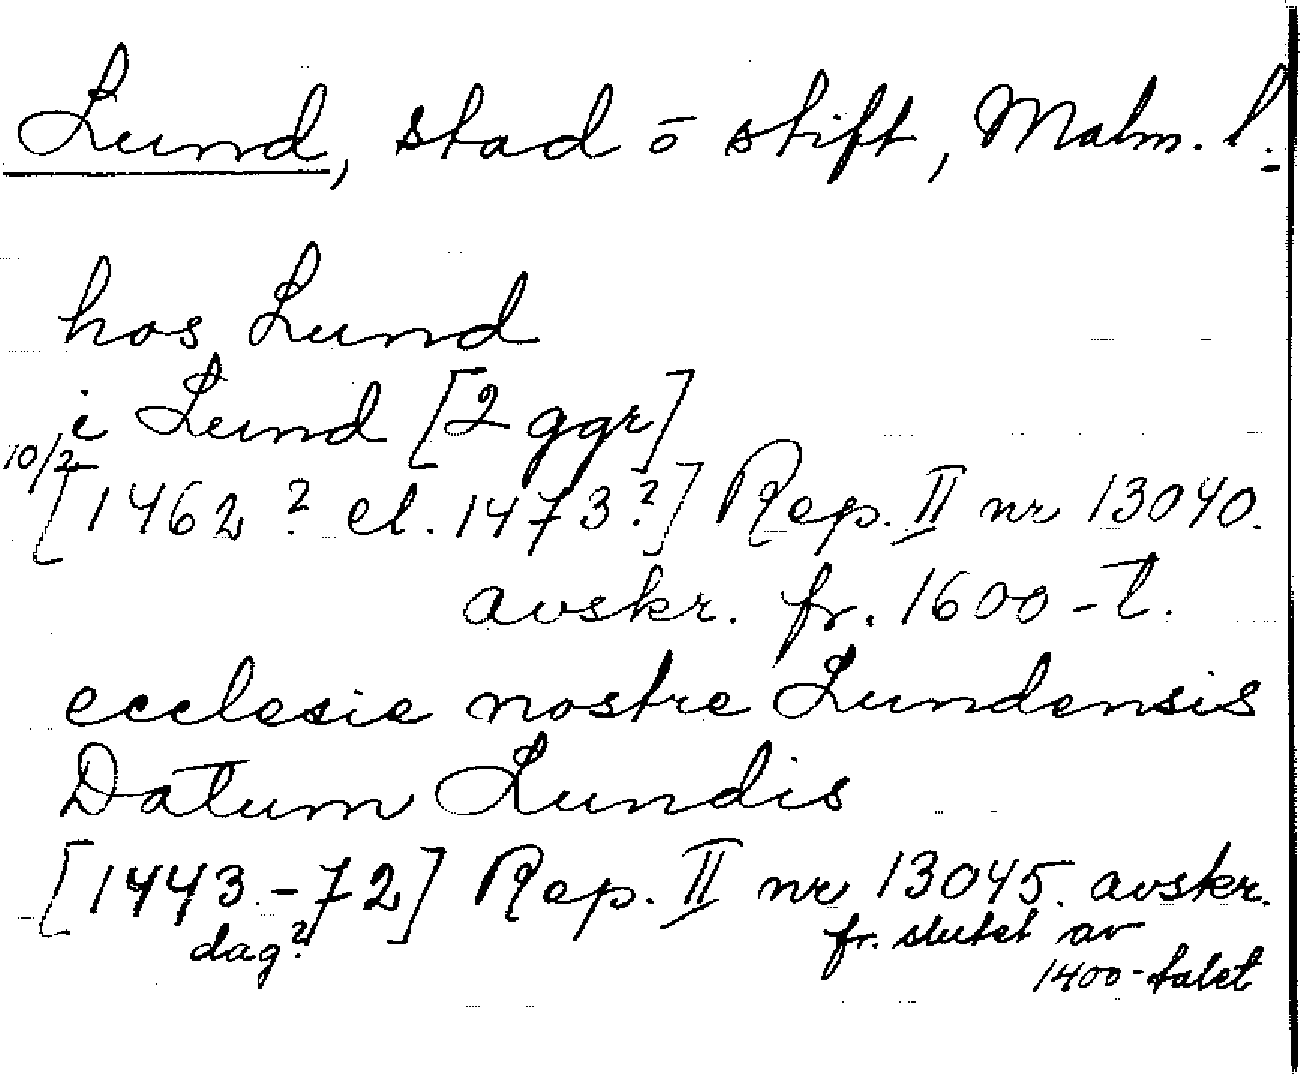 Lund, stad o stift, Malm. l.
hos Lund
i Lund [2 ggr]
10/2
[1462? el. 1473?] Rep. II nr 13040.
avskr. fr. 1600-t.
ecclesie nostre Lundensis
Datum Lundis
[1443-72] Rep. II nr 13045. avskr.
dag? fr. slutet av
1400-talet